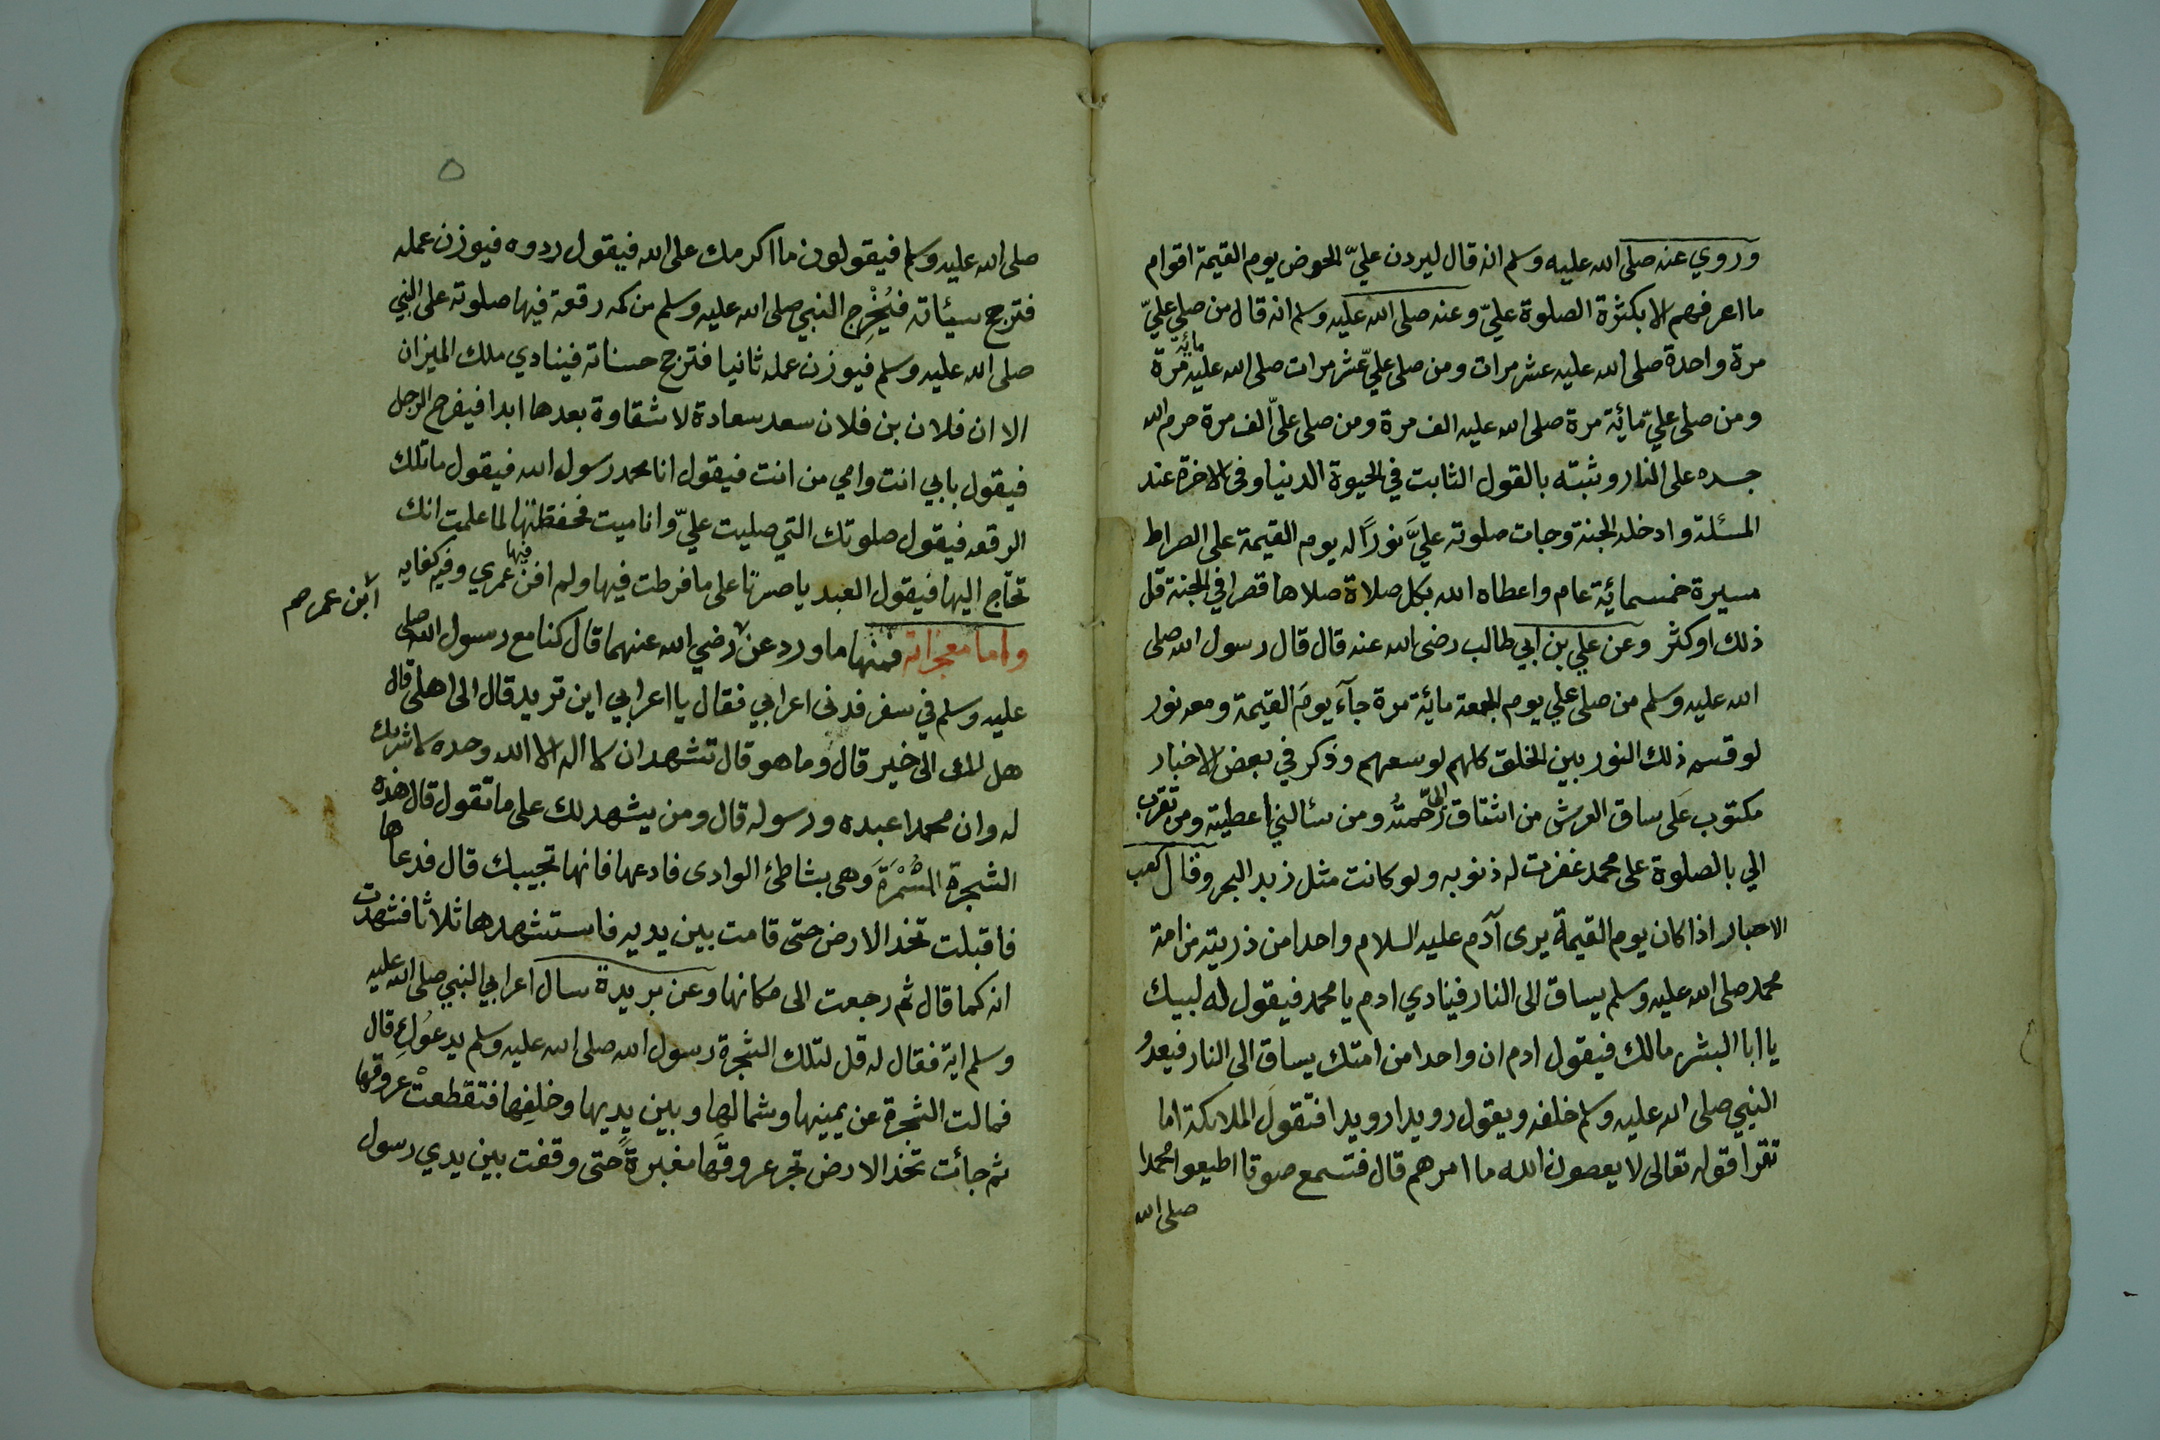 وروي عنه صلى الله عليه وسلم انه قال ليردن عليّ الحوض يوم القيمة اقوام
ما اعرفهم الا بكثرة الصلوة عليّ وعنه صلى الله عليه وسلم انه قال من صلي عليّ
مرة واحدة صلى الله عليه عشر مرات ومن صلى عليّ عشر مرات صلى الله عليه مائة مرة
ومن صلى عليّ مائة مرة صلى الله عليه الف مرة ومن صلى عليّ الف مرة حرم الله
جسده على النار وثبته بالقول الثابت في الحيوة الدنيا وفى الاخرة عند
المسئلة وادخله الجنة وجات صلوته عليَّ نورًا له يوم القيمة على الصراط
مسيرة خمسمائة عام واعطاه الله بكل صلاة صلاها قصرا في الجنة قل
ذلك او كثر وعن علي بن ابي طالب رضى الله عنه قال قال رسول الله صلى
الله عليه وسلم من صلى علي يوم الجمعة مائة مرة جآء يومَ القيمة ومعه نور
لو قسم ذلك النور بين الخلق كلهم لوسعهم وذكر في بعض الاخبار
مكتوب على ساق العرش من اشتاق الى رحمته ومن سئالني اعطيته ومن تقرب
الي بالصلوة على محمد غفرت له ذنوبه ولو كانت مثل زبد البحر وقال كعب
الاحبار اذا كان يوم القيمة يرى آدم عليه السلام واحدا من ذريته من امة
محمد صلى الله عليه وسلم يساق الى النار فينادي ادم يا محمد فيقول له لبيك
يا ابا البشر مالك فيقول ادم ان واحدا من امتك يساق الى النار فيعدو
النبي صلى الله عليه وسلم خلفه ويقول رويدا رويدا فتقول الملائكة اما
تقرا قوله تعالى لا يعصون الله ما امرهم قال فتسمع صوتا اطيعوا محمدا
صلى الله
٥
صلى الله عليه وسلم فيقولون ما اكرمك على الله فيقول ردوه فيوزن عمله
فترجح سيئاته فيُخْرِج النبي صلى الله عليه وسلم من كمه رقعة فيها صلوته على النبي
صلى الله عليه وسلم فيوزن عمله ثانيا فترجح حسناته فينادي ملك الميزان
الا ان فلان بن فلان سعد سعادة لا شقاوة بعدها ابدا فيفرح الرجل
فيقول بابي انت وامي من انت فيقول انا محمد رسول الله فيقول ما تلك
الرقعه فيقول صلوتك التي صليت عليّ وانا ميت فحفظتها لما علمت انك
تحتاج اليها فيقول العبد يا حسرتا على ما فرطت فيها ولم افن فيها عمري وفيه كفايه
واما معجزاته فمنها ما ورد عن رضي الله عنهما قال كنا مع رسول الله صلى
ابن عمر صح
عليه وسلم في سفر فدنى اعرابي فقال يا اعرابي اين تريد قال الى اهلي قال
هل لك الى خير قال وما هو قال تشهد ان لا اله الا الله وحده لا شريك
له وان محمدا عبده ورسوله قال ومن يشهد لك على ما تقول قال هذه
الشجرة المثمرة وهى بشاطئ الوادى فادعها فانها تجيبك قال فدعاها
فاقبلت تخد الارض حتى قامت بين يديه فاستشهدها ثلاثا فشهدت
انه كما قال ثم رجعت الى مكانها وعن بريدة سال اعرابي النبي صلى الله عليه
وسلم اية فقال له قل لتلك الشجرة رسول الله صلى الله عليه وسلم يدعوكِ قال
فمالت الشجرة عن يمينها وشمالها وبين يديها وخلفها فتقطعت عروقها
ثم جائت تخد الارض تجر عروقها مغبرةً حتى وقفت بين يدي رسول